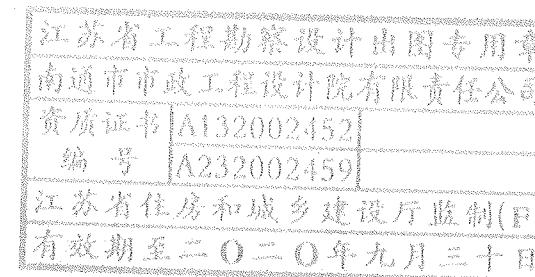 江苏省工程勘察设计出图专用章
南通市市政工程设计院有限责任公司
资质证书 A132002452
编号 A232002459
江苏省住房和城乡建设厅监制(F
有效期至二〇二〇年九月三十日